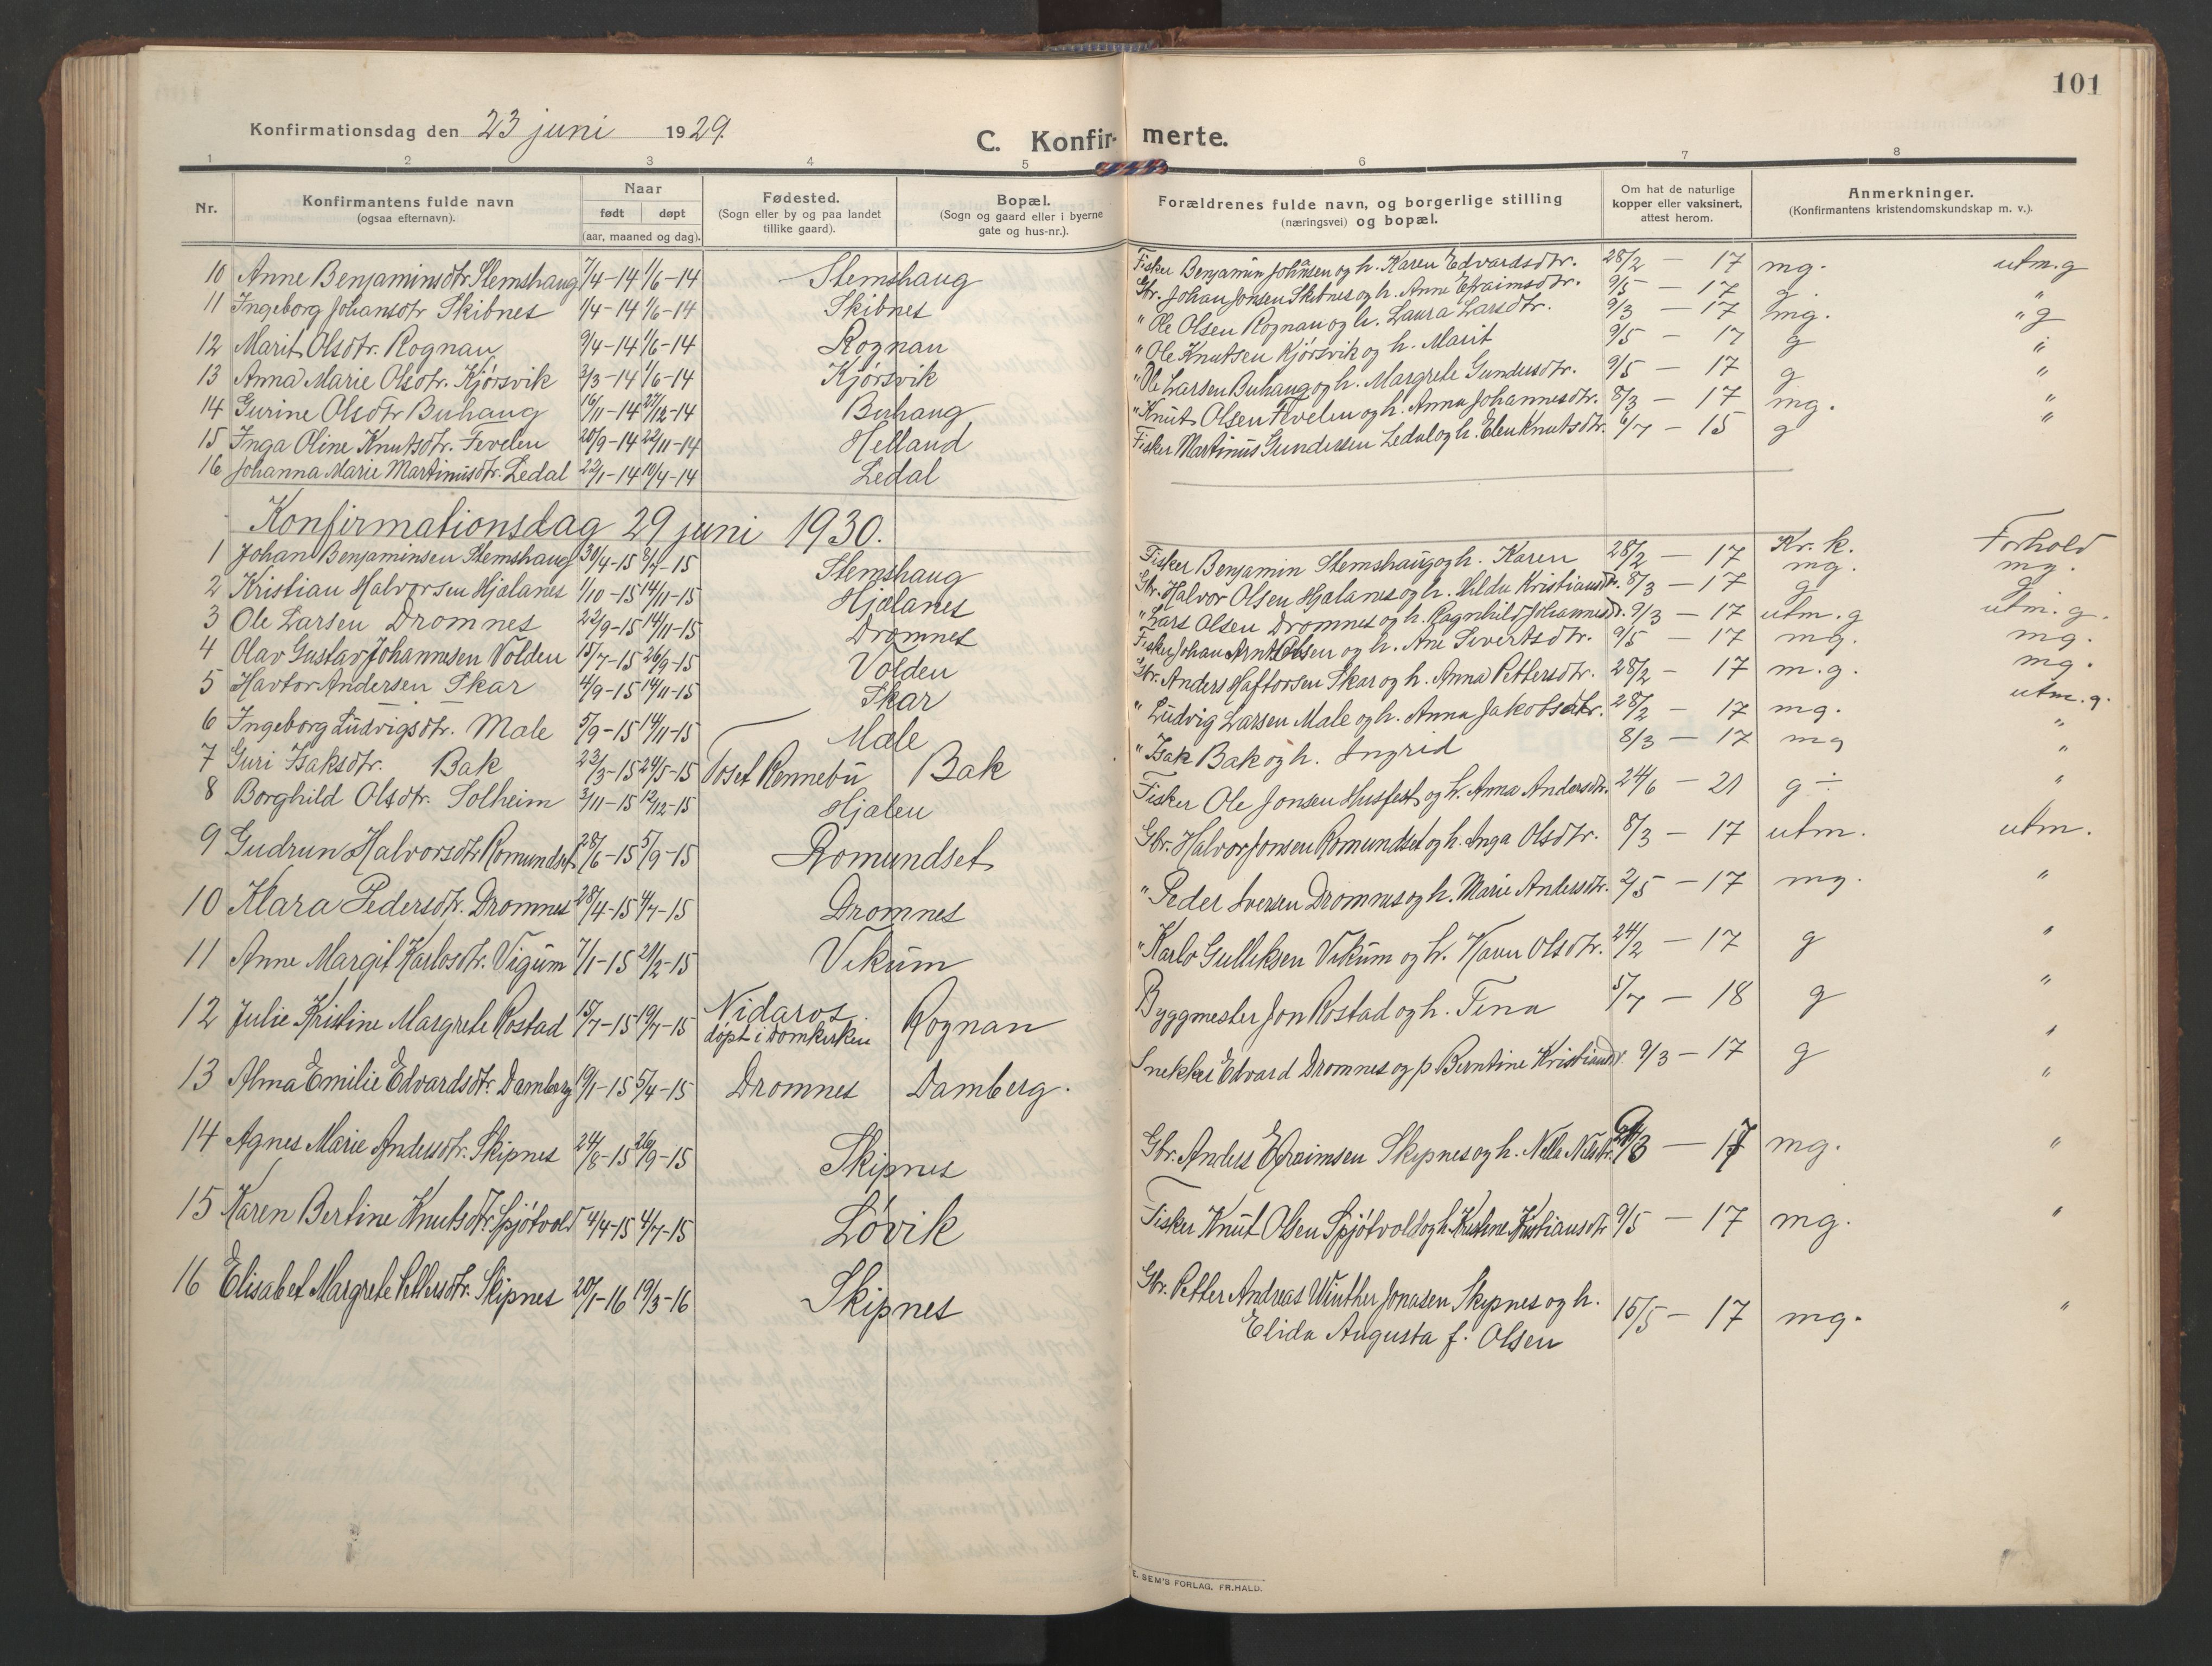 101
Konfirmationsdag den 23 juni 1929.
C. Konfir- merte.
1 2 3 4 5 6 7 8
Nr.
Konfirmantens fulde navn
(ogsaa efternavn).
Naar
født døpt
(aar, maaned og dag).
Fødested.
(Sogn eller by og paa landet
tillike gaard).
Bopæl.
(Sogn og gaard eller i byerne
gate og hus-nr.).
Forældrenes fulde navn, og borgerlige stilling
(næringsvei) og bopæl.
Om hat de naturlige
kopper eller vaksinert,
attest herom.
Anmerkninger.
(Konfirmantens kristendomskundskap m. v.).
10 Anne Benjaminsdtr Stemshaug 7/4-14 1/6-14 Stemshaug Fisker Benjamin Johansen og h. Karen Edvardsdtr. 28/2 - 17 mg. utm. g
11 Ingeborg Johansdtr Skibnes 1/4-14 1/6-14 Skibnes Gbr. Johan Jonsen Skibnes og h. Anne Efraimsdtr. 9/5 - 17 g. "
12 Marit Olsdtr. Rognan 9/4-14 1/6-14 Rognan " Ole Olsen Rognan og h. Laura Larsdtr. 9/3 - 17 mg. " g
13 Anna Marie Olsdtr. Kjørsvik 3/3-14 1/6-14 Kjørsvik " Ole Knutsen Kjørsvik og h. Marit 9/5 - 17 g "
14 Gurine Olsdtr Buhaug 16/11-14 27/12-14 Buhaug " Ole Larsen Buhaug og h. Margrete Gundersdtr. 9/5 - 17 g "
15 Inga Oline Knutsdtr. Fevelen 20/9-14 22/11-14 Helland " Knut Olsen Fevelen og h. Anna Johannesdtr. 8/3 - 17 mg. "
16 Johanna Marie Martinusdtr. Ledal 22/1-14 10/4-14 Ledal Fisker Martinus Gundersen Ledal og h. Elen Knutsdtr. 6/7 - 15 g "
Konfirmationsdag 29 juni 1930.
Kr. k. Forhold
1 Johan Benjaminsen Stemshaug 30/4-15 8/7-15 Stemshaug Fisker Benjamin Stemshaug og h. Karen 28/2 - 17 mg. mg.
2 Kristian Halvorsen Hjalanes 1/10-15 14/11-15 Hjalanes Gbr. Halvor Olsen Hjalanes og h. Hilda Kristiansdtr. 8/3 - 17 g g
3 Ole Larsen Dromnes 22/9-15 14/11-15 Dromnes " Lars Olsen Dromnes og h. Ragnhild Johannesdtr. 9/3 - 17 utm. g utm. g.
4 Olav Gustav Johannesen Volden 15/7-15 26/9-15 Volden Fisker Johan Arnt Olsen og h. Ane Sivertsdtr. 9/5 - 17 mg. mg.
5 Havtor Andersen Skar 4/9-15 14/11-15 Skar Gbr. Anders Haftorsen Skar og h. Anna Pettersdtr. 28/2 - 17 m. g. mg.
6 Ingeborg Ludvigsdtr. Male 5/9-15 14/11-15 Male " Ludvig Larsen Male og h. Anna Jakobsdtr. 28/2 - 17 mg. utm. g.
7 Guri Isaksdtr. Bak 23/3-15 24/5-15 Toset Rennebu Bak " Isak Bak og h. Ingrid 8/3 - 17 mg "
8 Borghild Olsdtr. Solheim 3/11-15 12/12-15 Hjalen Fisker Ole Jonsen Husfest og h. Anna Andersdtr. 24/6 - 21 g ÷ "
9 Gudrun Halvorsdtr. Romundset 28/6-15 5/9-15 Romundset Gbr. Halvor Jonsen Romundset og h. Inga Olsdtr. 8/3 - 17 utm. utm.
10 Klara Pedersdtr. Dromnes 28/4-15 4/7-15 Dromnes " Peder Iversen Dromnes og h. Marie Andersdtr. 2/5 - 17 mg. "
11 Anne Margit Karlosdtr. Vigum 7/1-15 21/2-15 Vikum " Karlo Gulliksen Vikum og h. Karen Olsdtr. 24/2 - 17 g "
12 Julie Kristine Margrete Rostad 15/7-15 19/7-15 Nidaros. døpt i domkirken Rognan Byggmester Jon Rostad og h. Tina 5/7 - 18 g "
13 Alma Emilie Edvardsdtr. Damberg 19/1-15 5/4-15 Dromnes Damberg. Snekker Edvard Dromnes og p Berntine Kristiansdtr 9/3 - 17 g "
14 Agnes Marie Andersdtr. Skipnes 24/8-15 26/9-15 Skipnes Gbr. Anders Efraimsen Skipnes og h. Nella Nilsdtr. 9/3 - 17 mg. "
15 Karen Bertine Knutsdtr. Spjøtvold 4/4-15 4/7-15 Løvik Fisker Knut Olsen Spjøtvold og h. Kristine Kristiansdtr 9/5 - 17 mg. "
16 Elisabet Margrete Pettersdtr. Skipnes 20/1-16 19/3-16 Skipnes Gbr. Petter Andreas Winther Jonasen Skipnes og h.
Elida Augusta f. Olsen 15/5 - 17 mg. "
E. SEM'S FORLAG, FR.HALD.